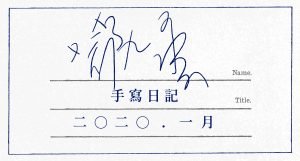 Name.
手寫日記
Title.
二〇二〇．一月